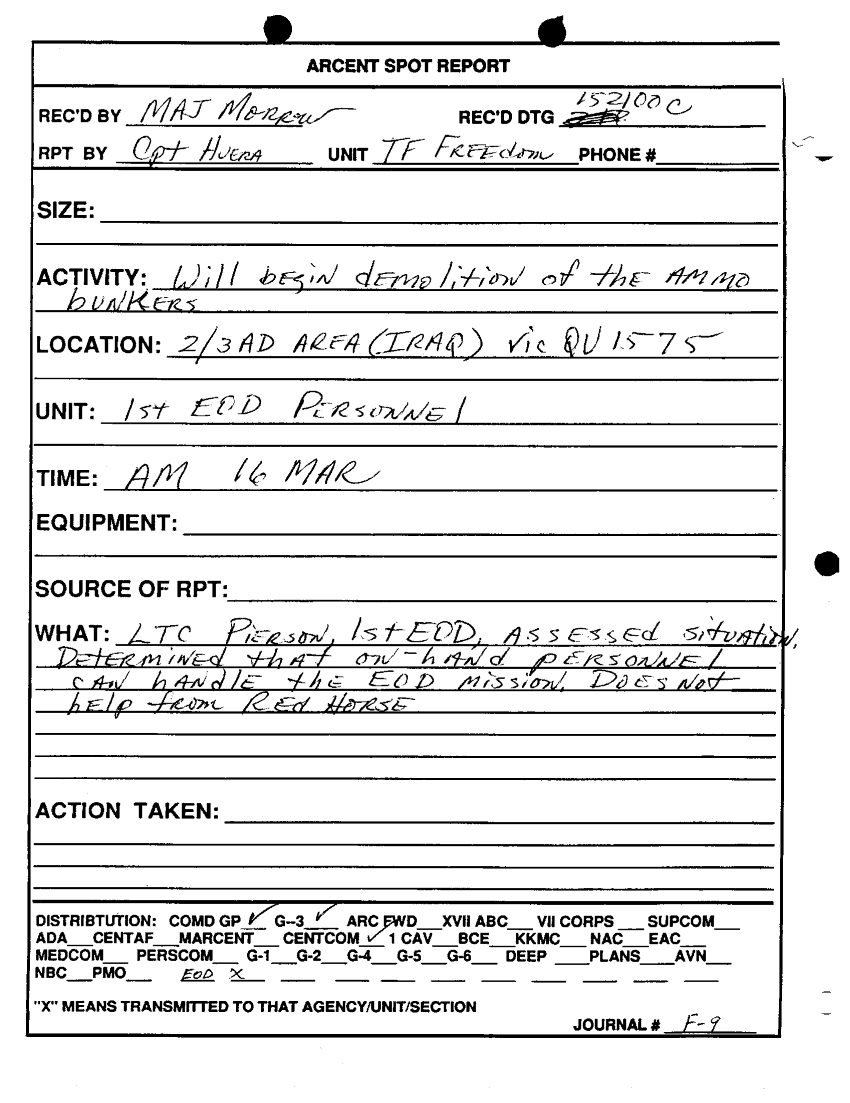 ARCENT SPOT REPORT
REC'D BY MAJ Morrow REC'D DTG 152100C
RPT BY Cpt HUERA UNIT TF FREEdom PHONE #
SIZE:
ACTIVITY: Will begin demolition of the AMMO
bUNKERS
LOCATION: 2/3AD AREA (IRAQ) vic QU 1575
UNIT: 1st EOD PERSONNEL
TIME: AM 16 MAR
EQUIPMENT:
SOURCE OF RPT:
WHAT: LTC PIERSON, 1st EOD, ASSESSED situation,
DETERMINED that on-hand PERSONNEL
CAN hANdLE the EOD MISSION. DOES Not
hElp from REd HORSE
ACTION TAKEN:
DISTRIBTUTION: COMD GP ✓ G--3 ✓ ARC FWD XVII ABC VII CORPS SUPCOM
ADA CENTAF MARCENT CENTCOM ✓ 1 CAV BCE KKMC NAC EAC
MEDCOM PERSCOM G-1 G-2 G-4 G-5 G-6 DEEP PLANS AVN
NBC PMO EOD X
"X" MEANS TRANSMITTED TO THAT AGENCY/UNIT/SECTION
JOURNAL # F-9